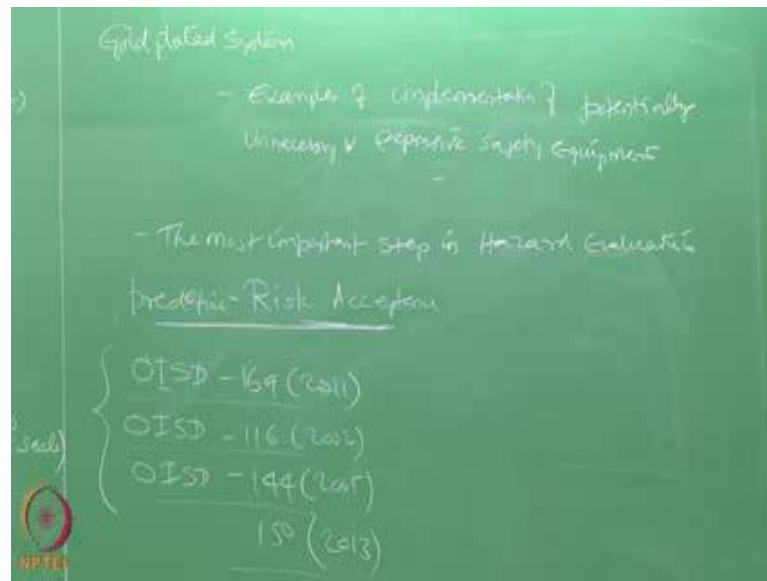 Gold plated System
- Examples of implementation of potentially
Unnecessary & expensive safety equipment
- The most important step in Hazard Evaluation
procedure - Risk Acceptance
OISD - 169 (2011)
OISD - 116 (2002)
seals)
OISD - 144 (2005)
150 (2013)
NPTEL